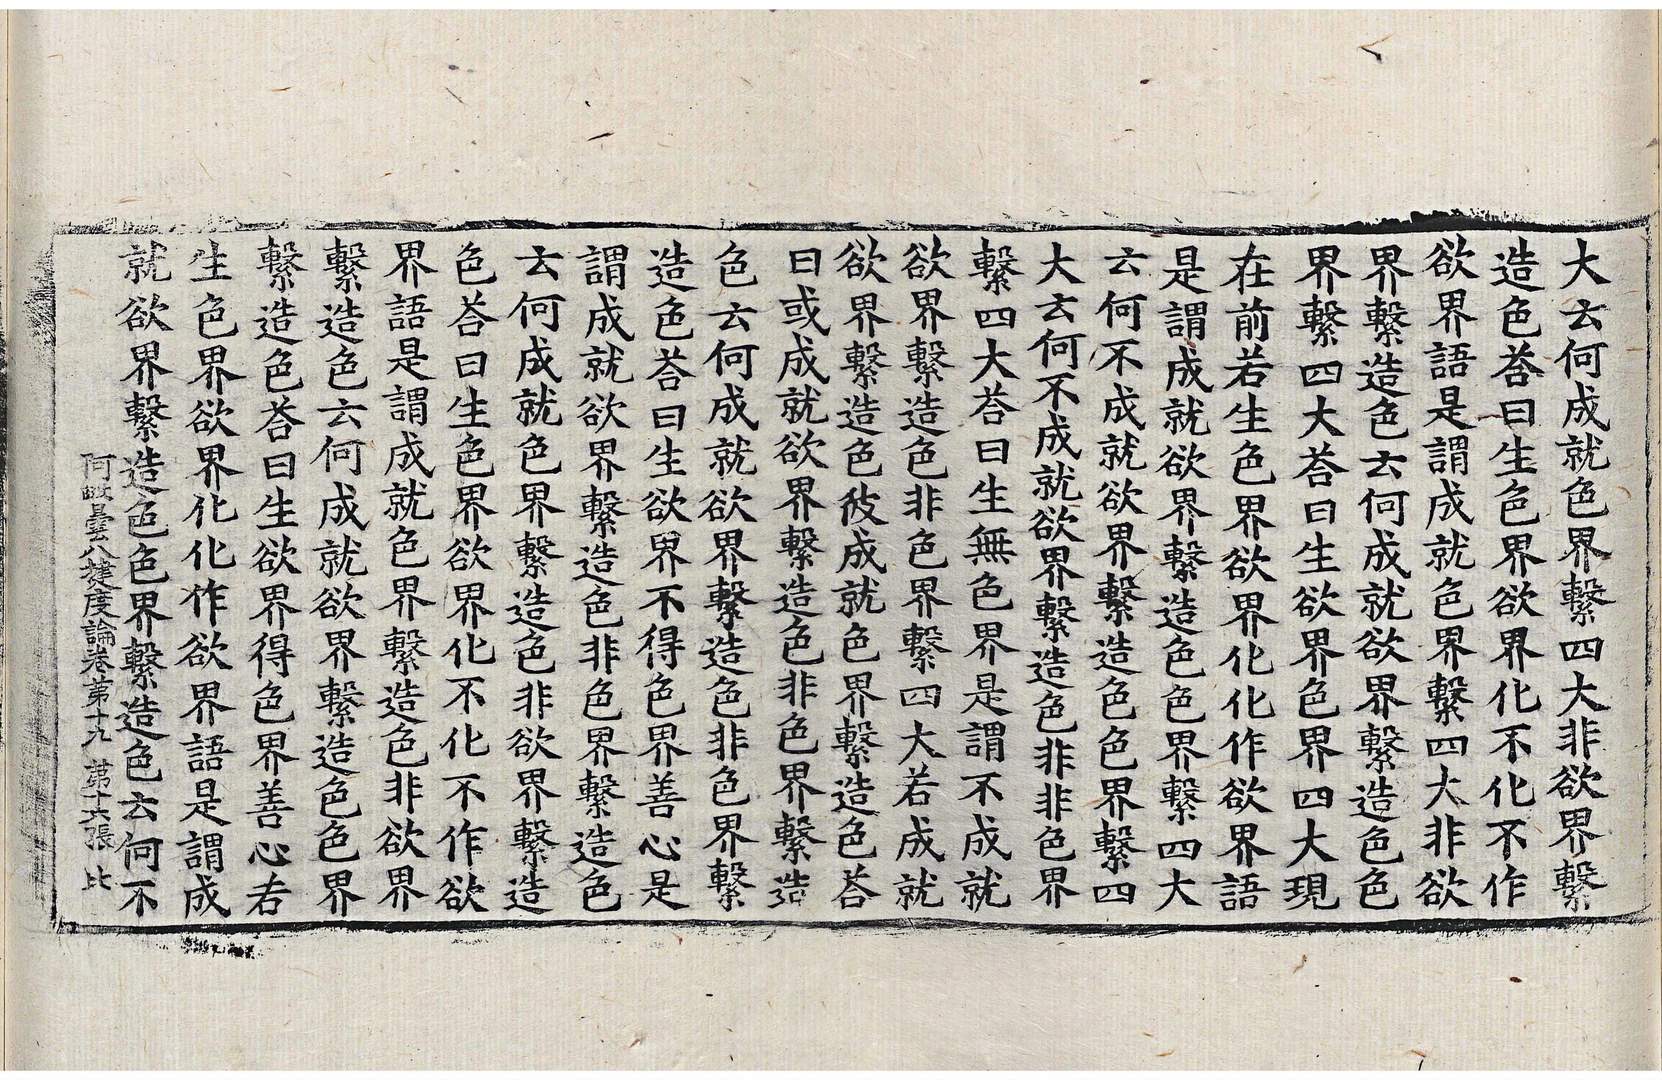 大云何成就色界繫四大非欲界繫
造色荅曰生色界欲界化不化不作
欲界語是謂成就色界繫四大非欲
界繫造色云何成就欲界繫造色色
界繫四大荅曰生欲界色界四大現
在前若生色界欲界化化作欲界語
是謂成就欲界繫造色色界繫四大
云何不成就欲界繫造色色界繫四
大云何不成就欲界繫造色非非色界
繫四大荅曰生無色界是謂不成就
欲界繫造色非色界繫四大若成就
欲界繫造色彼成就色界繫造色荅
曰或成就欲界繫造色非色界繫造
色云何成就欲界繫造色非色界繫
造色荅曰生欲界不得色界善心是
謂成就欲界繫造色非色界繫造色
云何成就色界繫造色非欲界繫造
色荅曰生色界欲界化不化不作欲
界語是謂成就色界繫造色非欲界
繫造色云何成就欲界繫造色色界
繫造色荅曰生欲界得色界善心若
生色界欲界化化作欲界語是謂成
就欲界繫造色色界繫造色云何不
阿毗曇八揵度論卷苐十九 苐十六張 比